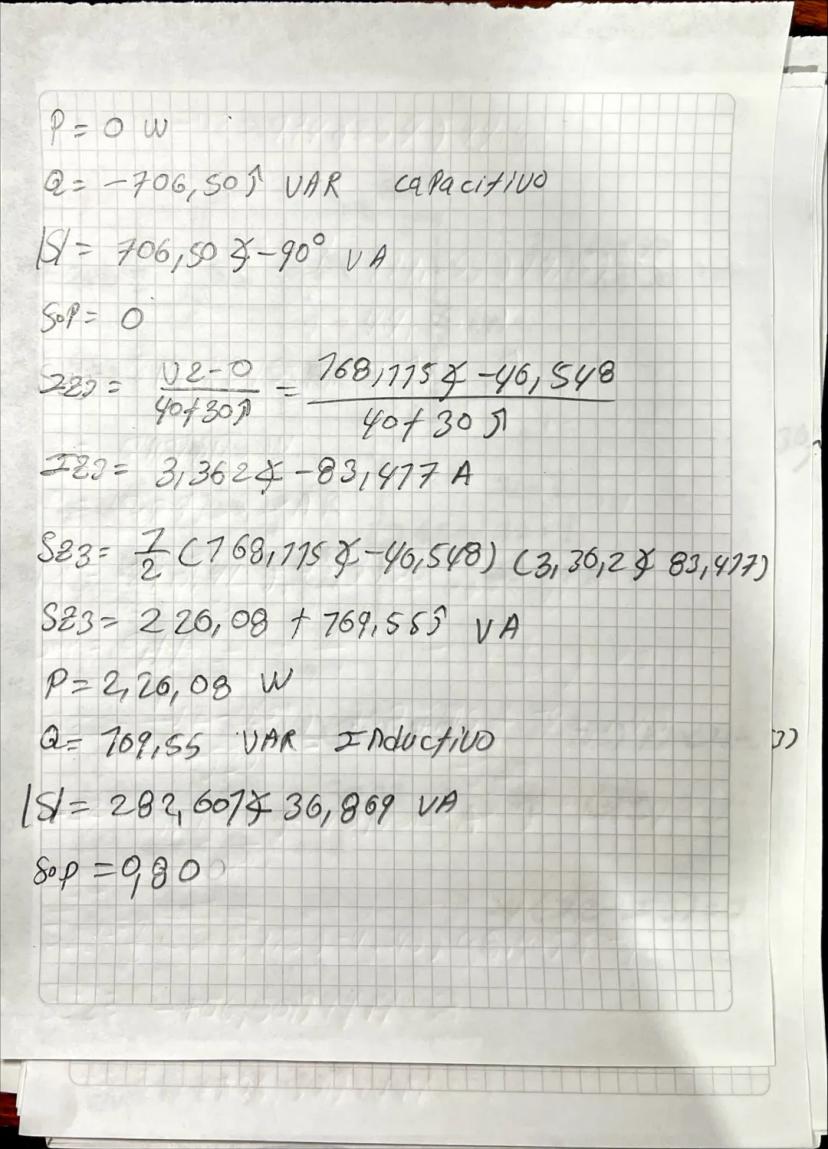 P = 0 W
Q = -706,50 j VAR capacitivo
|S| = 706,50 ∡ -90° VA
fop = 0
IZ3 = V2-0 / 40+30j = 168,115 ∡ -46,548 / 40+30j
IZ3 = 3,362 ∡ -83,417 A
SZ3 = 1/2 (168,115 ∡ -46,548) (3,36,2 ∡ 83,417)
SZ3 = 226,08 + 169,55j VA
P = 2,26,08 W
Q = 169,55 VAR Inductivo
|S| = 282,601 ∡ 36,869 VA
fop = 0,80